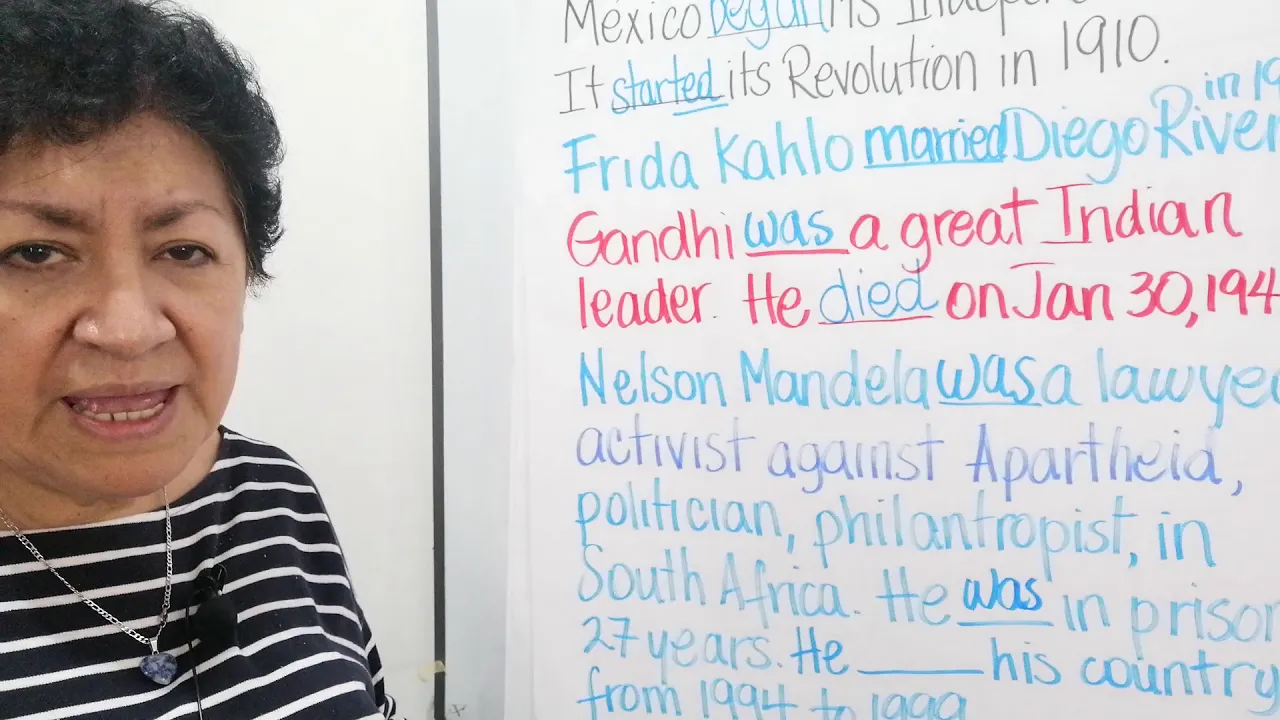 México began its Indepe
It started its Revolution in 1910.
in 19
Frida Kahlo married Diego River
Gandhi was a great Indian
leader. He died on Jan 30, 194
Nelson Mandela was a lawye
activist against Apartheid,
politician, philantropist, in
South Africa. He was in prison
27 years. He ____ his country
from 1994 to 1999